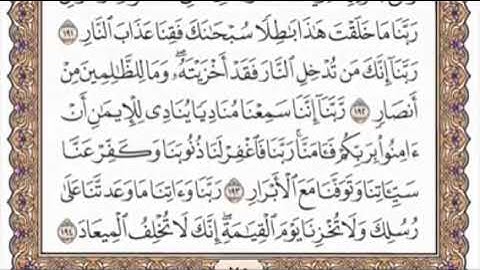 رَبَّنَا مَا خَلَقْتَ هَٰذَا بَٰطِلًا سُبْحَٰنَكَ فَقِنَا عَذَابَ النَّارِ ١٩١
رَبَّنَا إِنَّكَ مَن تُدْخِلِ النَّارَ فَقَدْ أَخْزَيْتَهُۥ ۖ وَمَا لِلظَّٰلِمِينَ مِنْ
أَنصَارٍ ١٩٢ رَّبَّنَا إِنَّنَا سَمِعْنَا مُنَادِيًا يُنَادِى لِلْإِيمَٰنِ أَنْ
ءَامِنُوا۟ بِرَبِّكُمْ فَـَٔامَنَّا ۚ رَبَّنَا فَاغْفِرْ لَنَا ذُنُوبَنَا وَكَفِّرْ عَنَّا
سَيِّـَٔاتِنَا وَتَوَفَّنَا مَعَ الْأَبْرَارِ ١٩٣ رَبَّنَا وَءَاتِنَا مَا وَعَدتَّنَا عَلَىٰ
رُسُلِكَ وَلَا تُخْزِنَا يَوْمَ الْقِيَٰمَةِ ۗ إِنَّكَ لَا تُخْلِفُ الْمِيعَادَ ١٩٤